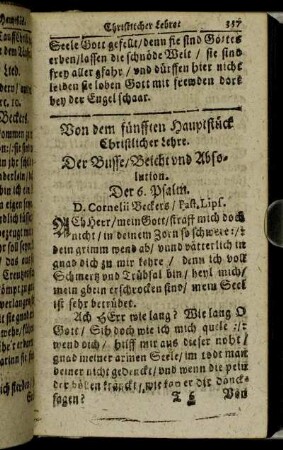 Christlicher Lehre. 357
Seele Gott gefellt / denn sie sind Gottes
erben / lassen die schnöde Welt / sie sind
frey aller gfahr / vnd dürffen hier nicht
leiden sie loben Gott mit frewden dort
bey der Engel schaar.
Von dem fünfften Hauptstück
Christlicher Lehre.
Der Busse / Beicht vnd Abso-
lution.
Der 6. Psalm.
D. Cornelii Beckers / Past. Lips.
ACh Herr / mein Gott / straff mich doch
nicht / in deinem Zorn so schwere :/:
dein grimm wend ab / vnnd vätterlich in
gnad dich zu mir kehre / denn ich voll
Schmertz vnd Trübsal bin / heyl mich /
mein gbein erschrocken sind / mein Seel
ist sehr betrübet.
Ach HErr wie lang? Wie lang O
Gott / Sih doch wie ich mich quele :/:
wend dich / hilff mir aus dieser noht /
gnad meiner armen Seele / im todt man
deiner nicht gedenckt / vnd wenn die pein
der höllen kränckt / wie kan er dir danck-
sagen? Von